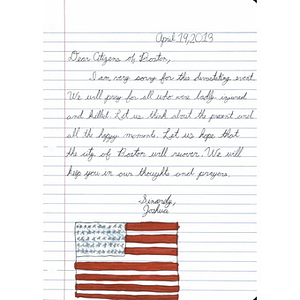 April 19, 2013
Dear Citizens of Boston,
I am very sorry for this devastating event.
We will pray for all who were badly injured
and killed. Let us think about the present and
all the happy moments. Let us hope that
the city of Boston will recover. We will
keep you in our thoughts and prayers.
Sincerely,
Joshua